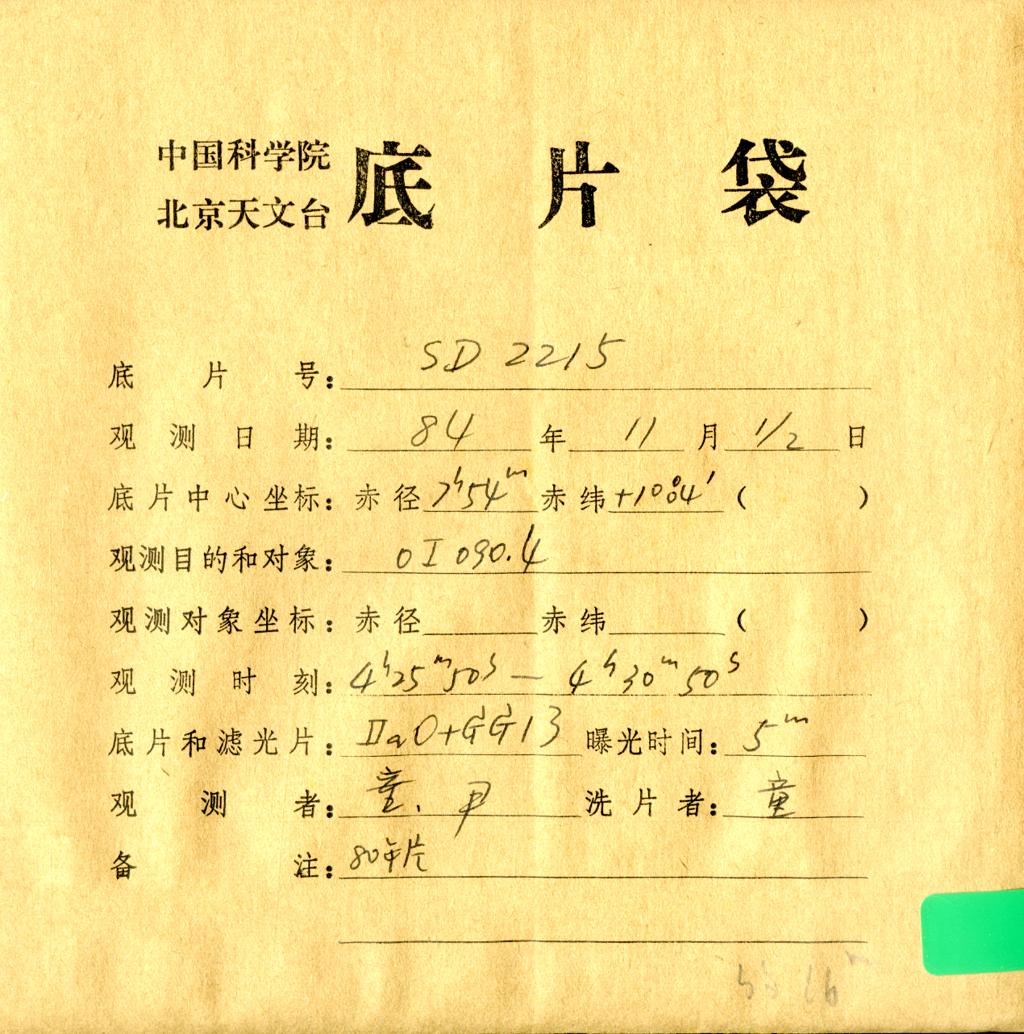 中国科学院
北京天文台
底片袋
底片号: SD 2215
观测日期: 84 年 11 月 1/2 日
底片中心坐标: 赤径 7h54m 赤纬 +10°04′ ( )
观测目的和对象: OI 090.4
观测对象坐标: 赤径 赤纬 ( )
观测时刻: 4h25m50s — 4h30m50s
底片和滤光片: IIaO+GG13 曝光时间: 5m
观测者: 童、尹 洗片者: 童
备注: 80年片